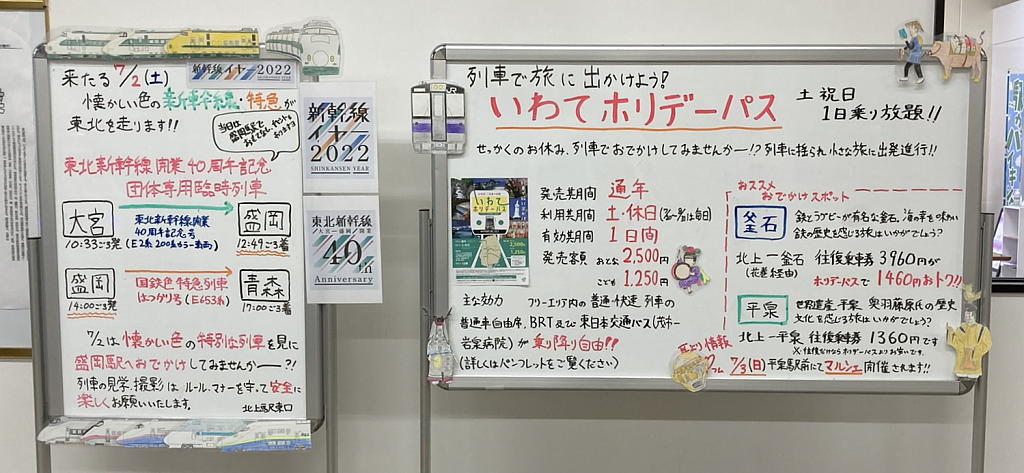 来たる 7/2(土)
新幹線イヤー2022
SHINKANSEN YEAR
懐かしい色の新幹線・特急が
東北を走ります!!
当日は
盛岡駅で
東北新幹線開業40周年記念
団体専用臨時列車
大宮
10:33ごろ発
東北新幹線開業
40周年記念号
(E2系 200系カラー車両)
盛岡
12:49ごろ着
盛岡
14:00ごろ発
国鉄色特急列車
はつかり号(E653系)
青森
17:00ごろ着
7/2は懐かしい色の特別な列車を見に
盛岡駅へおでかけしてみませんかー?!
列車の見学、撮影は ルール、マナーを守って安全に
楽しくお願いいたします。
北上駅東口
新幹線
イヤー
2022
SHINKANSEN YEAR
東北新幹線
大宮-盛岡 開業
40th
Anniversary
列車で旅に出かけよう!
いわてホリデーパス
土祝日
1日乗り放題!!
せっかくのお休み、列車でおでかけしてみませんかー!? 列車に揺られ小さな旅に出発進行!!
いわて
ホリデーパス
発売期間 通年
利用期間 土・休日
有効期間 1日間
発売額 おとな 2,500円
こども 1,250円
主な効力 フリーエリア内の普通・快速列車の
普通車自由席、BRT及び東日本交通バス(茂市ー
岩泉病院)が乗り降り自由!!
(詳しくはパンフレットをご覧ください)
おススメ
おでかけスポット
釜石
鉄とラグビーが有名な釜石。海の幸を味わい
鉄の歴史を感じる旅はいかがでしょう?
北上ー釜石 往復乗車券 3960円が
(花巻経由)
ホリデーパスで1460円おトク!!
平泉
世界遺産・平泉、奥羽藤原氏の歴史
文化を感じる旅はいかがでしょう?
北上ー平泉 往復乗車券 1360円です
※往復だけならホリデーパスよりお安いです。
耳より情報
7/3(日)平泉駅前にてマルシェ開催されます!!